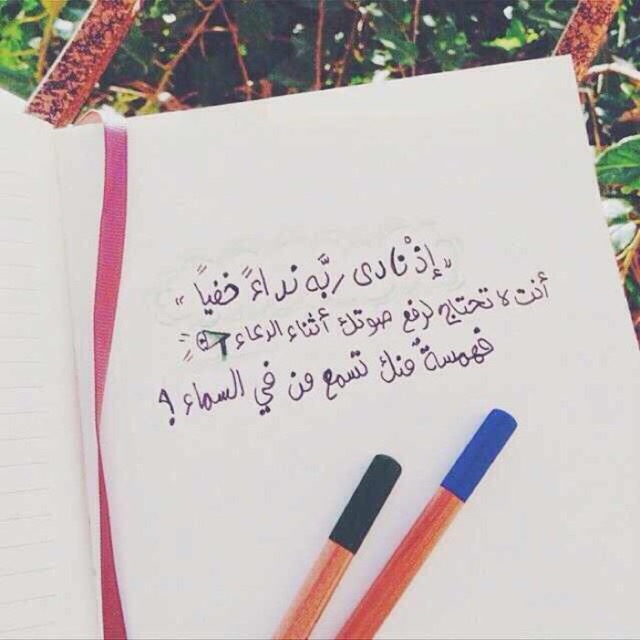 "إذْ نادى ربَّه نداءً خفياً"
أنت لا تحتاج لرفع صوتك أثناء الدعاء
فهمسةٌ منك تسمع من في السماء ؟